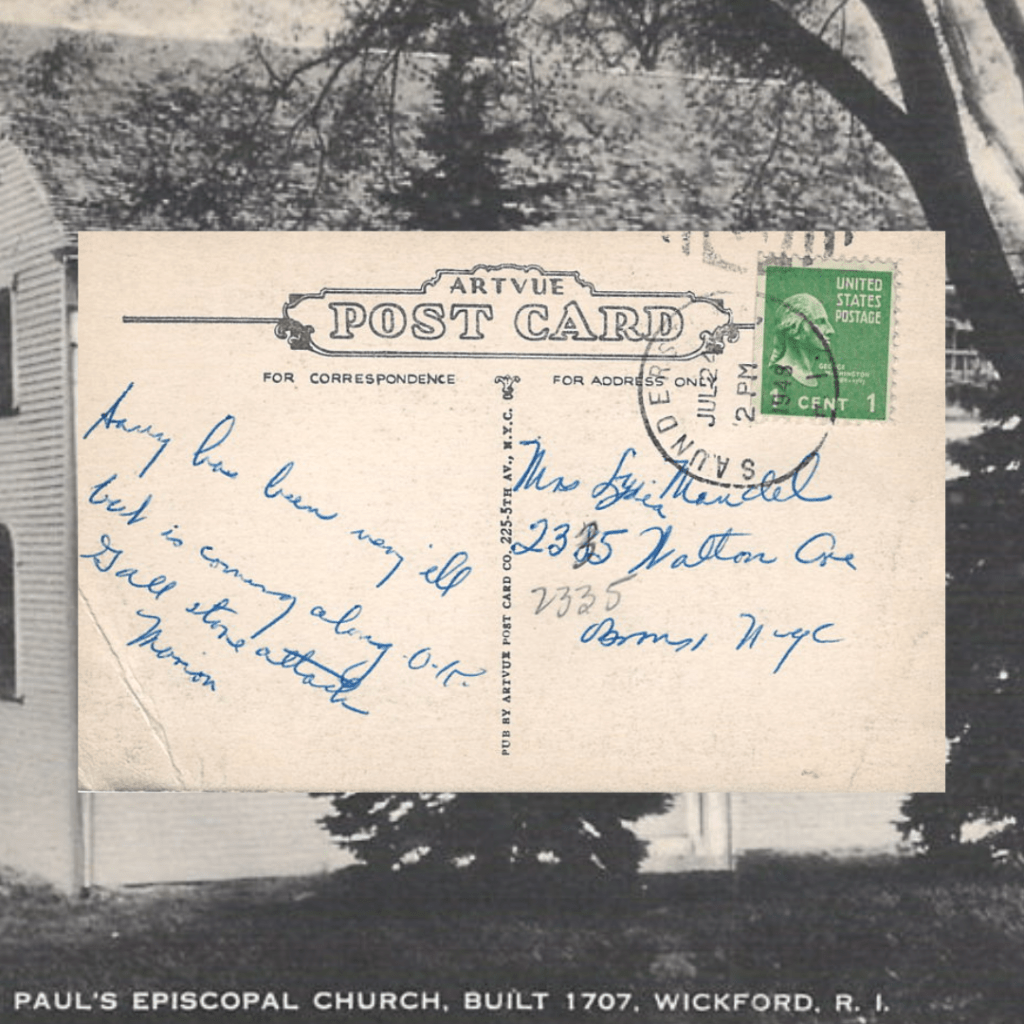 ARTVUE
POST CARD
FOR CORRESPONDENCE
FOR ADDRESS ONLY
UNITED
STATES
POSTAGE
GEORGE
WASHINGTON
1 CENT 1
SAUNDERS
JUL 24
2 PM
1948
Harry has been very ill
but is coming along O.K.
Gall stone attack
Marion
PUB BY ARTVUE POST CARD CO. 225-5TH AV., N.Y.C.
Mrs Mandel
2335 Walton Ave
2335
Bronx NYC
PAUL'S EPISCOPAL CHURCH, BUILT 1707, WICKFORD, R. I.